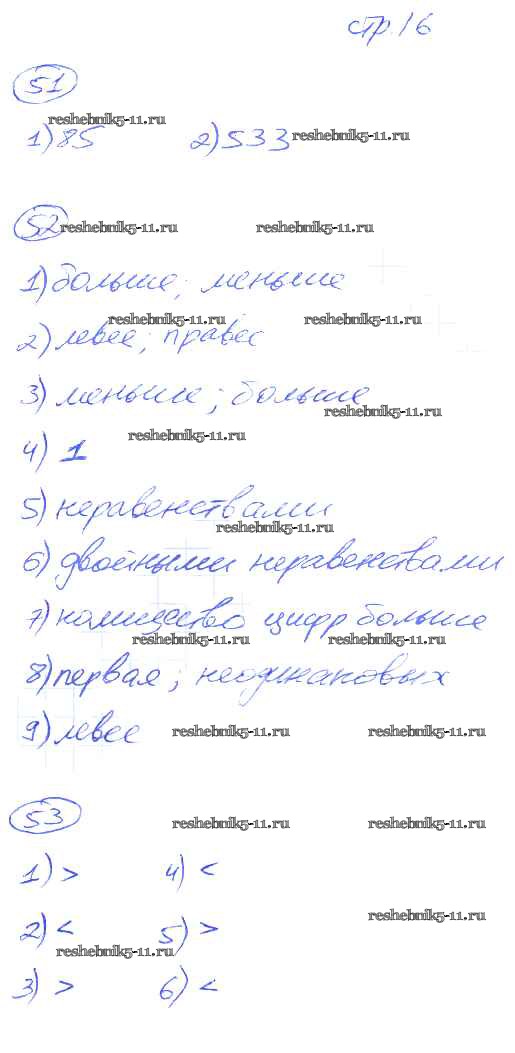 стр. 16
51
reshebnik5-11.ru
1) 85 2) 533 reshebnik5-11.ru
52 reshebnik5-11.ru reshebnik5-11.ru
1) больше; меньше
reshebnik5-11.ru reshebnik5-11.ru
2) левее; правее
3) меньше; больше
reshebnik5-11.ru
reshebnik5-11.ru
4) 1
5) неравенствами
reshebnik5-11.ru
6) двойными неравенствами
7) количество цифр больше
reshebnik5-11.ru reshebnik5-11.ru
8) первая; неодинаковых
9) левее reshebnik5-11.ru reshebnik5-11.ru
53 reshebnik5-11.ru reshebnik5-11.ru
1) > 4) <
reshebnik5-11.ru
2) < 5) >
reshebnik5-11.ru
3) > 6) <